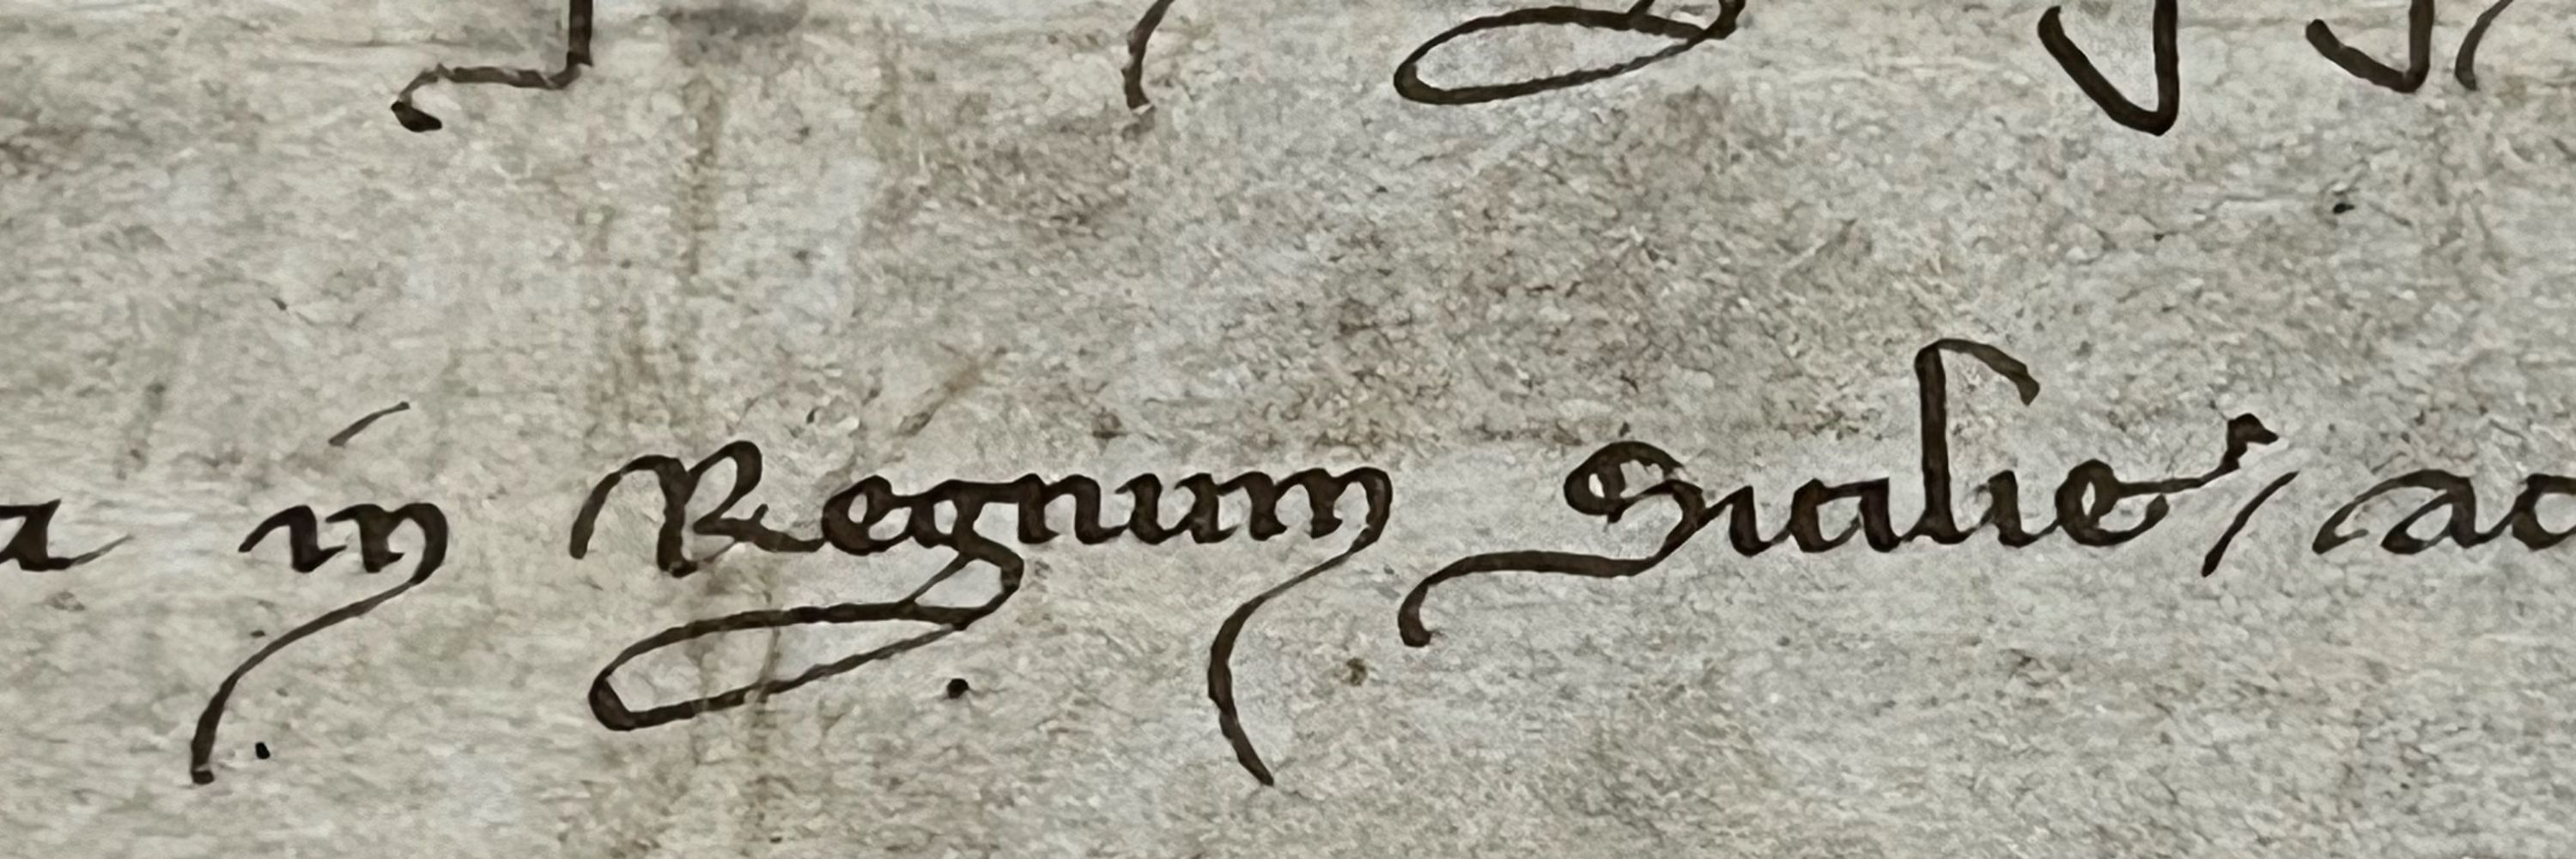 in Regnum Sicilie / ac